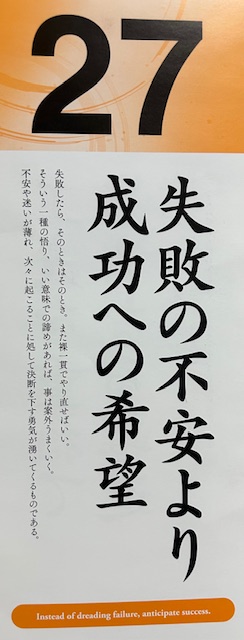 27
失敗の不安より
成功への希望
失敗したら、そのときはそのとき。また裸一貫でやり直せばいい。
そういう一種の悟り、いい意味での諦めがあれば、事は案外うまくいく。
不安や迷いが薄れ、次々に起こることに処して決断を下す勇気が湧いてくるものである。
Instead of dreading failure, anticipate success.